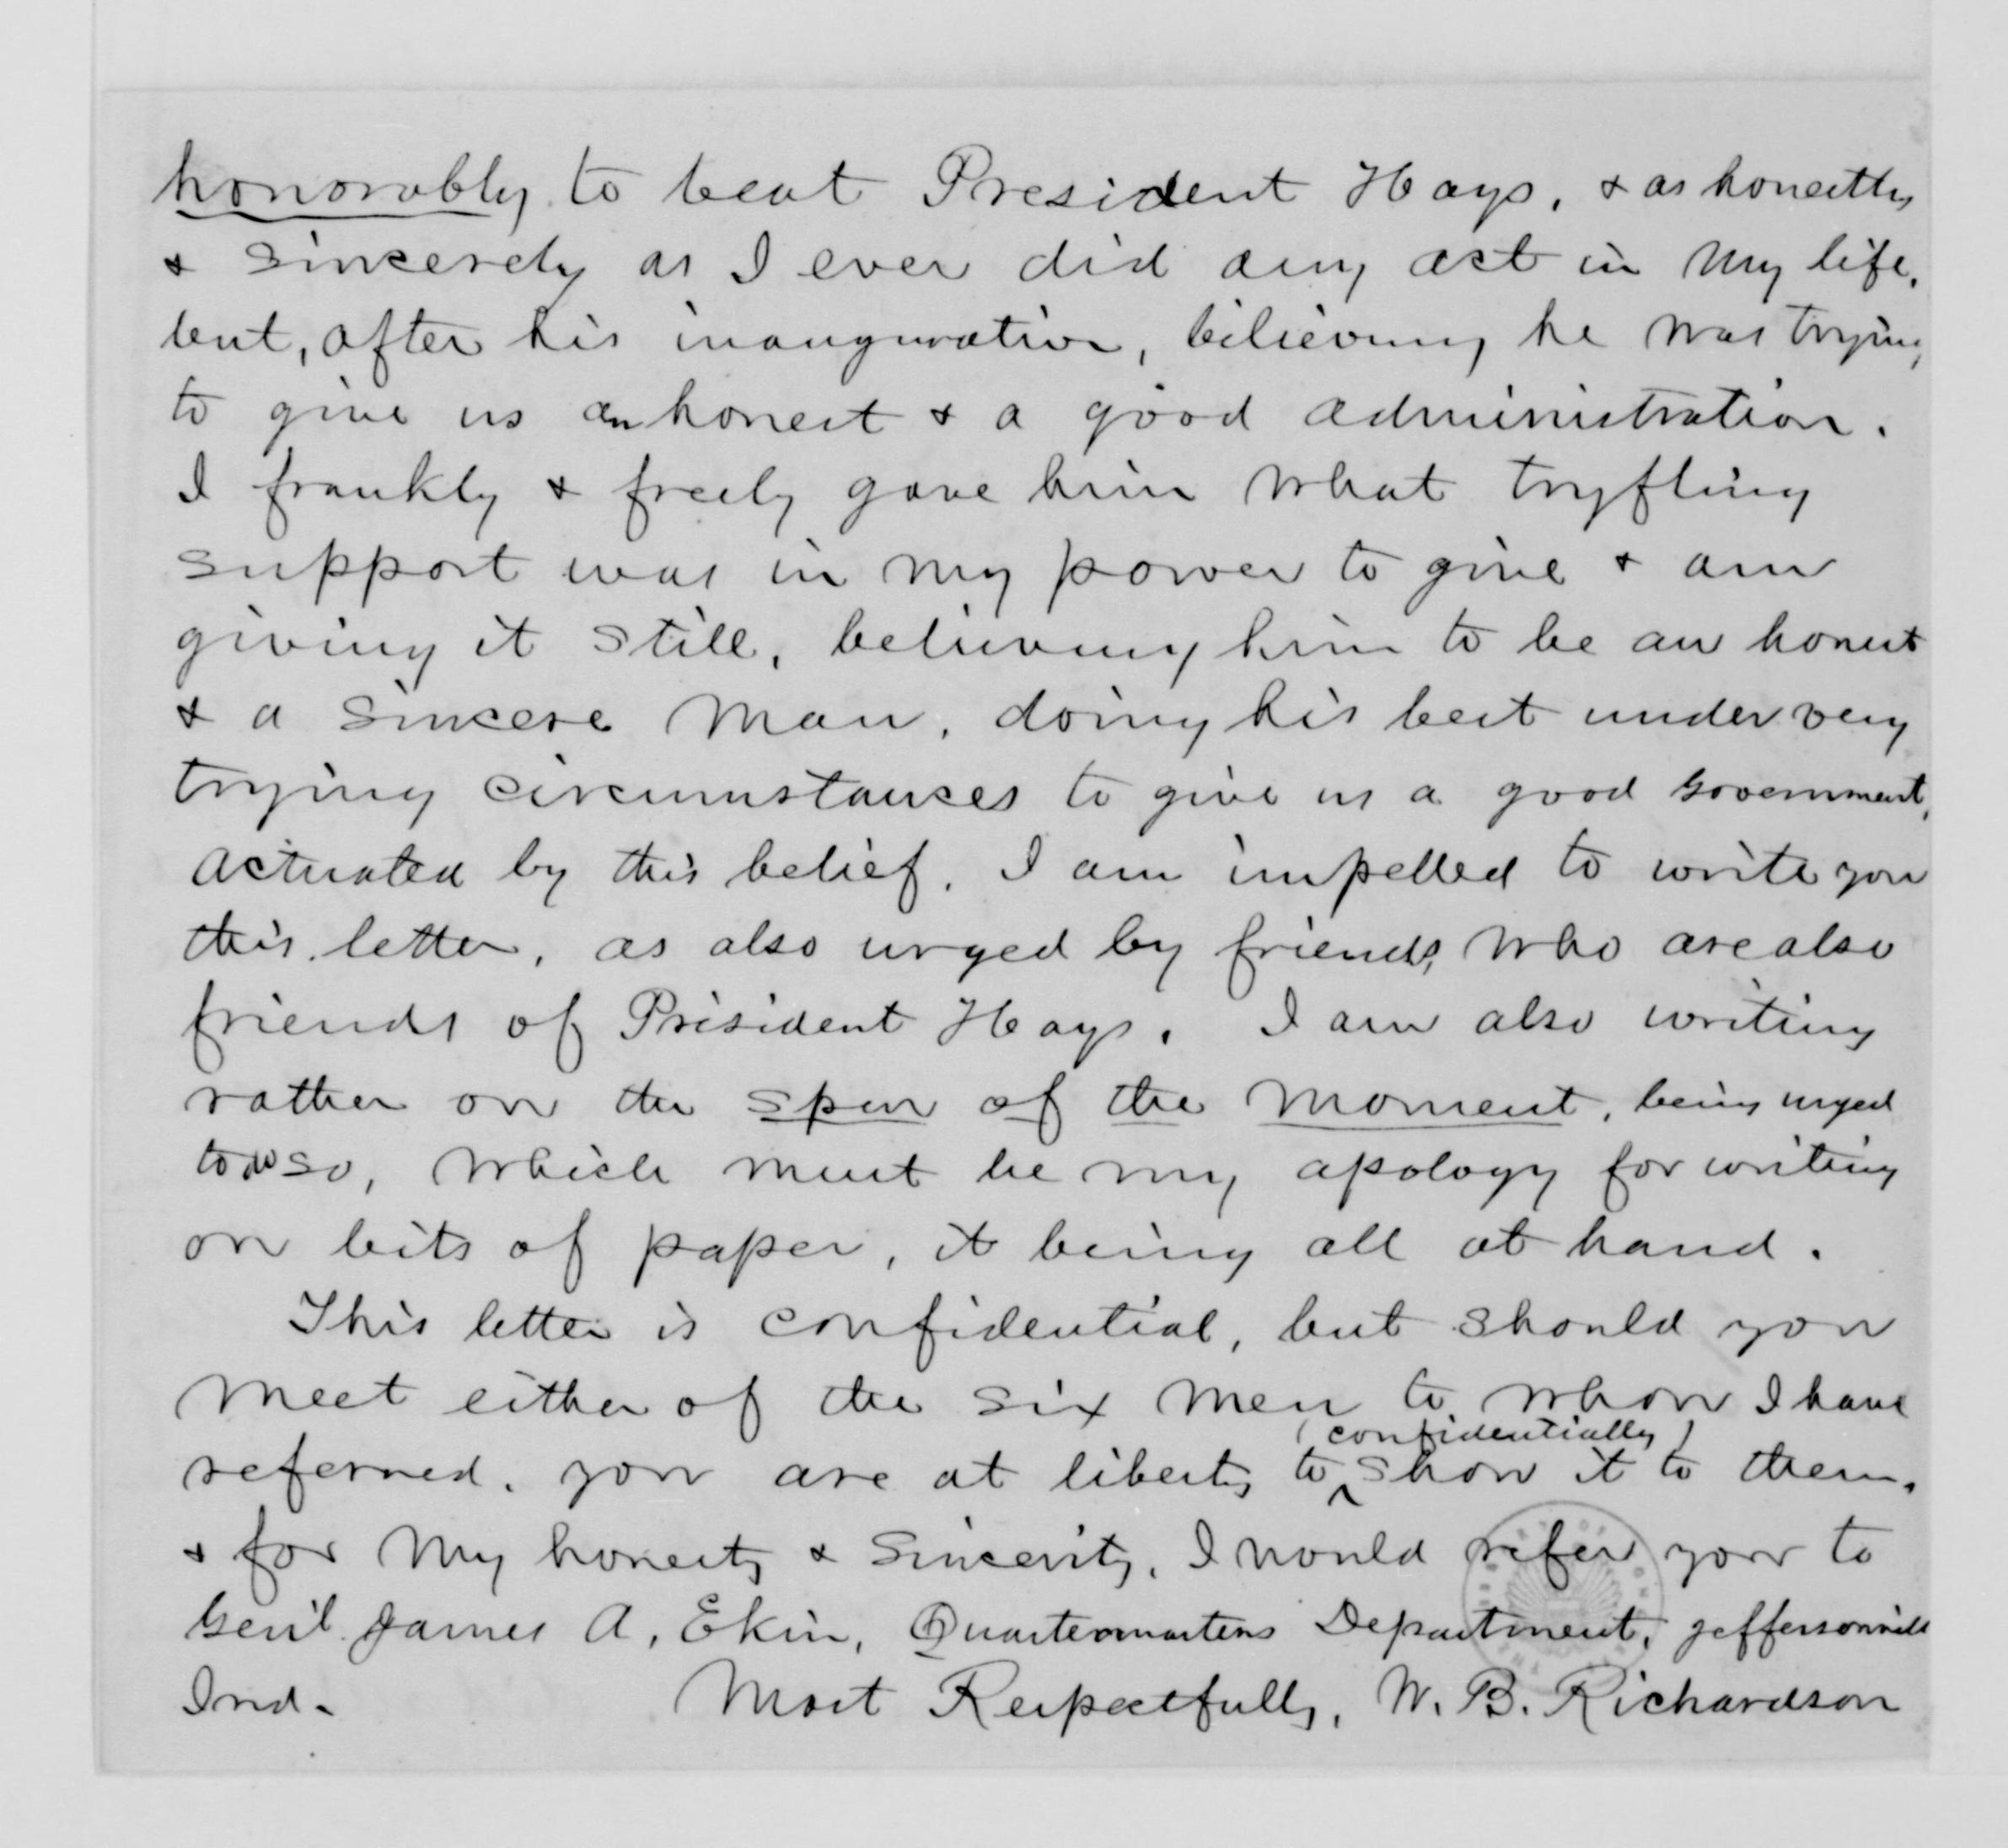 honorably to beat President Hays, & as honestly
& sincerely as I ever did any act in my life,
but, after his inauguration, bilieving he was trying,
to give us an honest & a good administration.
I frankly & freely gave him what tryfling
support was in my power to give & am
giving it still, believing him to be an honest
& a sincere man, doing his best under very
trying circumstances to give us a good Government,
actuated by this belief, I am impelled to write you
this letter, as also urged by friends, who are also
friends of President Hays. I am also writing
rather on the spur of the moment, being urged
to do so, which must be my apology for writing
on bits of paper, it being all at hand.
This letter is confidential, but should you
meet either of the six men to whom I have
(confidentially)
referred, you are at liberty to ^ show it to them,
& for my honesty & sincerity, I would refer you to
Gen'l James A. Ekin, Quartermasters Department, Jeffersonville
Ind.  Most Respectfully, W. B. Richardson